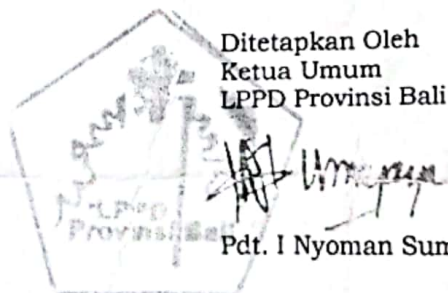 Ditetapkan Oleh
Ketua Umum
LPPD Provinsi Bali
LPPD
Provinsi Bali
Pdt. I Nyoman Sum